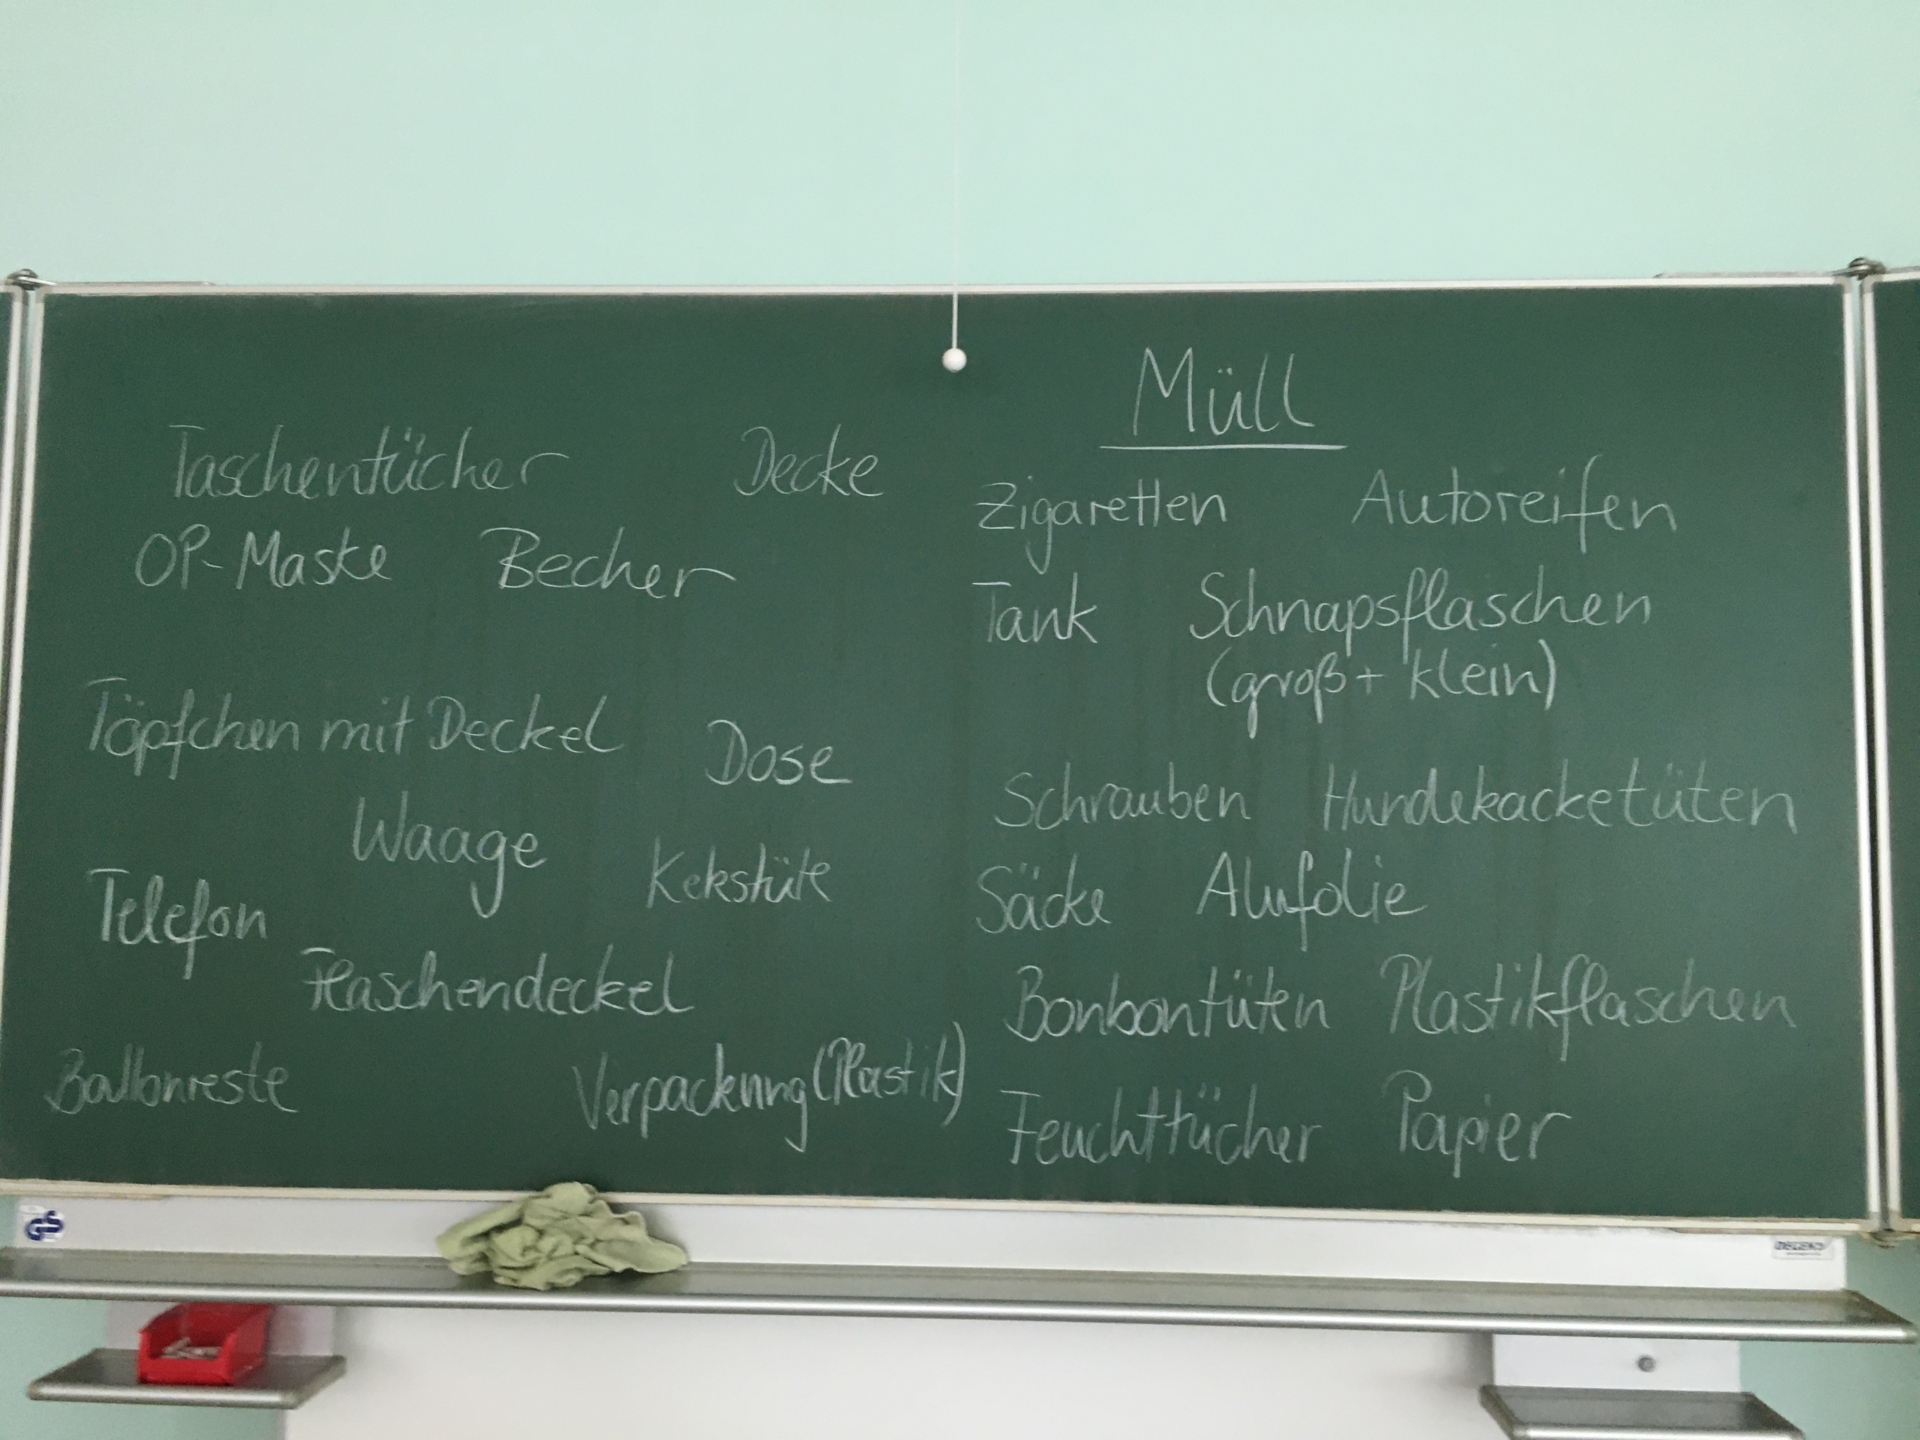 Müll
Taschentücher Decke
OP-Maske Becher
Töpfchen mit Deckel Dose
Waage
Kekstüte
Telefon
Flaschendeckel
Ballonreste Verpackung (Plastik)
Zigaretten Autoreifen
Tank Schnapsflaschen
(groß + klein)
Schrauben Hundekacketüten
Säcke Alufolie
Bonbontüten Plastikflaschen
Feuchttücher Papier
GS